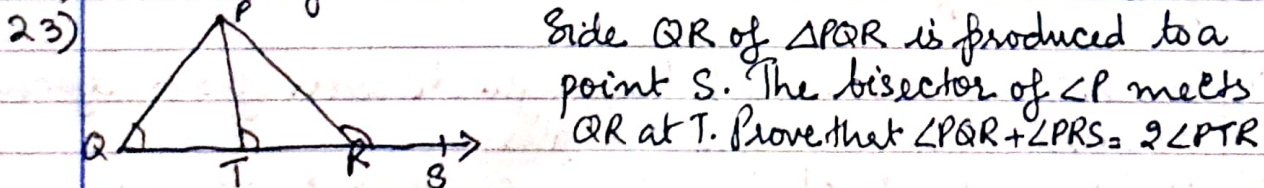 23)
P
Side QR of △PQR is produced to a
point S. The bisector of ∠P meets
QR at T. Prove that ∠PQR+∠PRS= 2∠PTR
Q T R S